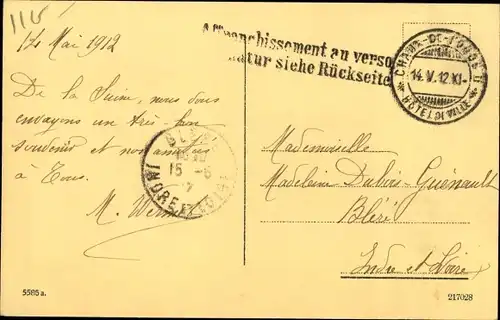 115
14 Mai 1912
De la Suisse, nous vous
envoyons un très bon
souvenir et nos amitiés
à Tous.
M.
Affranchissement au verso
siehe Rückseite
CHAUX-DE-FONDS
14.V.12.XI-
HÔTEL DE VILLE
BLÉRÉ
15 -5
INDRE ET LOIRE
Mademoiselle
Madeleine Dubois-Guénault
Bléré
Indre et Loire
5585a.
217028